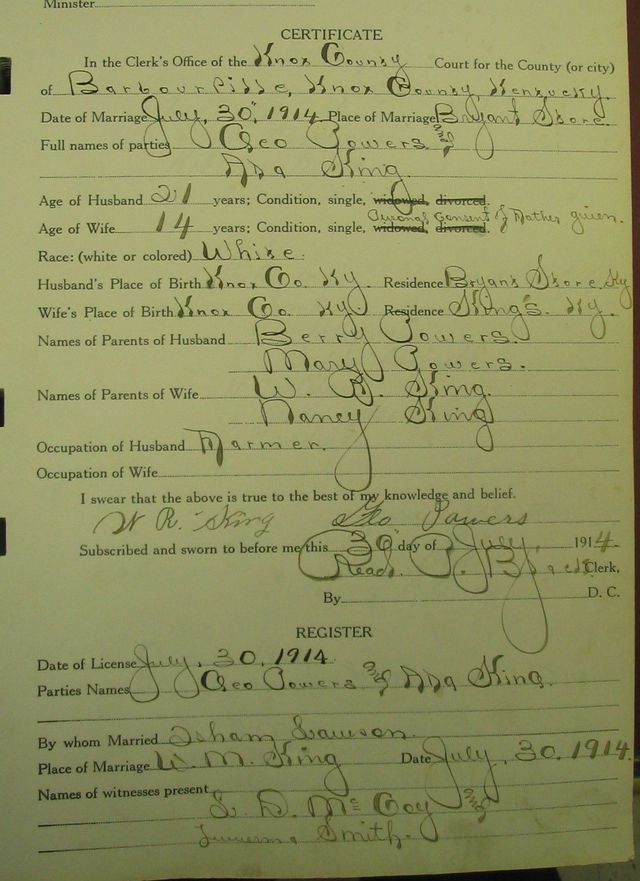 Minister
CERTIFICATE
In the Clerk's Office of the Knox County Court for the County (or city)
of Barbourville, Knox County, Kentucky.
Date of Marriage July, 30, 1914 Place of Marriage Bryant Store
Full names of parties Geo Powers &
Ada King.
Age of Husband 21 years; Condition, single, widowed, divorced.
Consent of Father given.
Age of Wife 14 years; Condition, single, widowed, divorced.
Race: (white or colored) White.
Husband's Place of Birth Knox Co. Ky. Residence Bryant Store Ky
Wife's Place of Birth Knox Co. Ky Residence King's Ky.
Names of Parents of Husband Berry Powers.
Mary Powers.
Names of Parents of Wife W. R. King.
Nancy King
Occupation of Husband Farmer.
Occupation of Wife
I swear that the above is true to the best of my knowledge and belief.
W R. King Geo Powers
Subscribed and sworn to before me this 30 day of July, 1914.
Read. P. Black Clerk,
By D. C.
REGISTER
Date of License July, 30, 1914
Parties Names Geo Powers & Ada King.
By whom Married Isham Lawson.
Place of Marriage W. M. King Date July, 30, 1914.
Names of witnesses present
L. D. McCoy &
Smith.